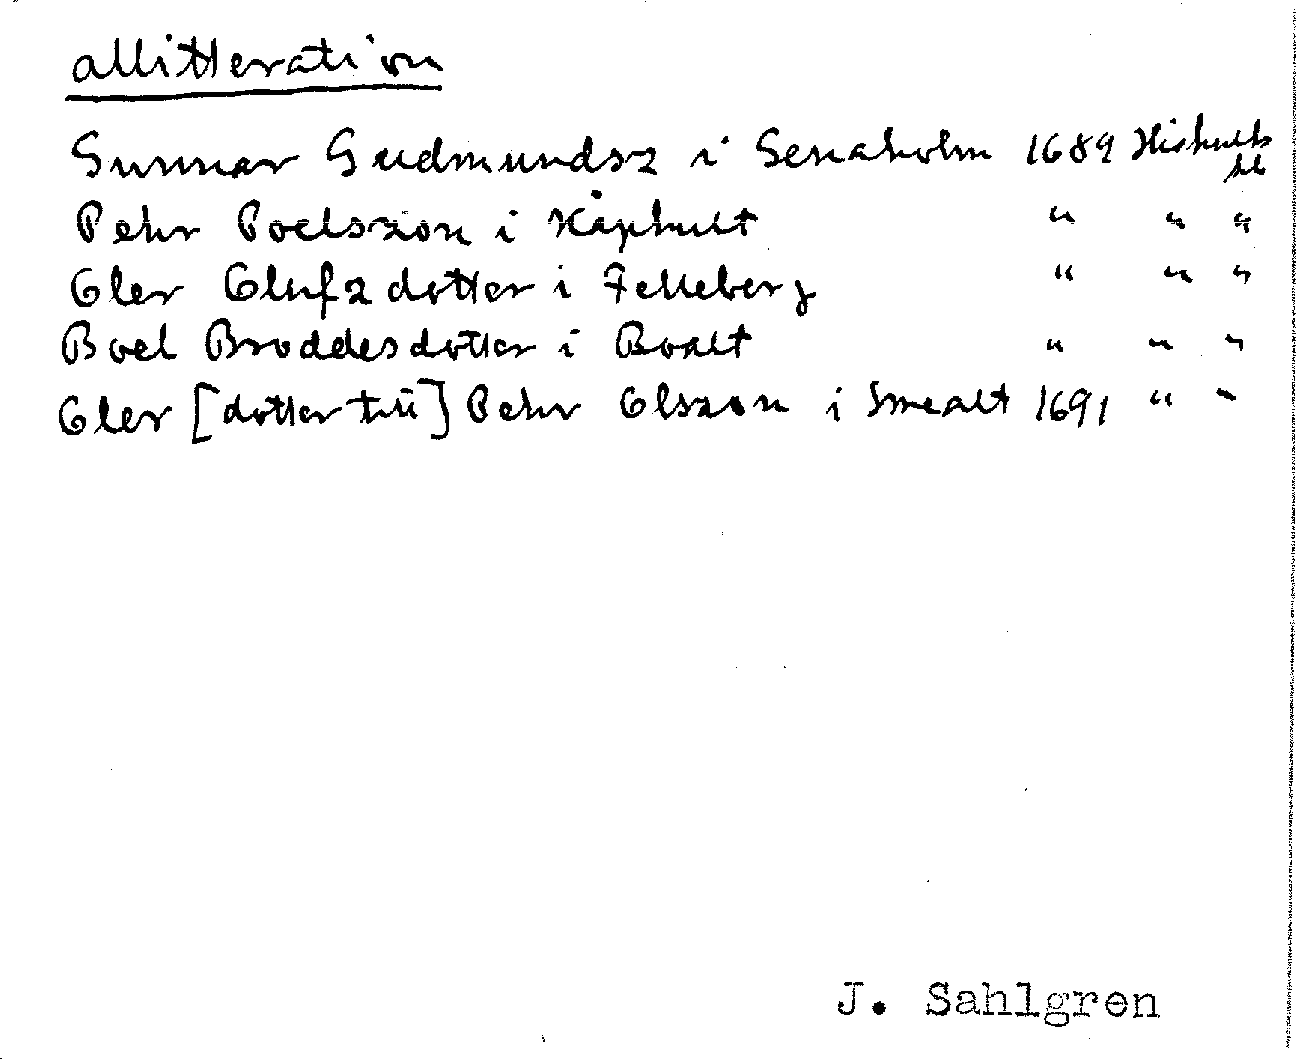 allitteration
Gunnar Gudmundsz i Genaholm 1689 Hishults
sk
Pehr Poelszon i Kåphult " " "
Eler Elufzdotter i Felleberg " " "
Boel Broddesdotter i Boalt " " "
Eler [dotter till] Pehr Elszon i Smealt 1691 " "
J. Sahlgren